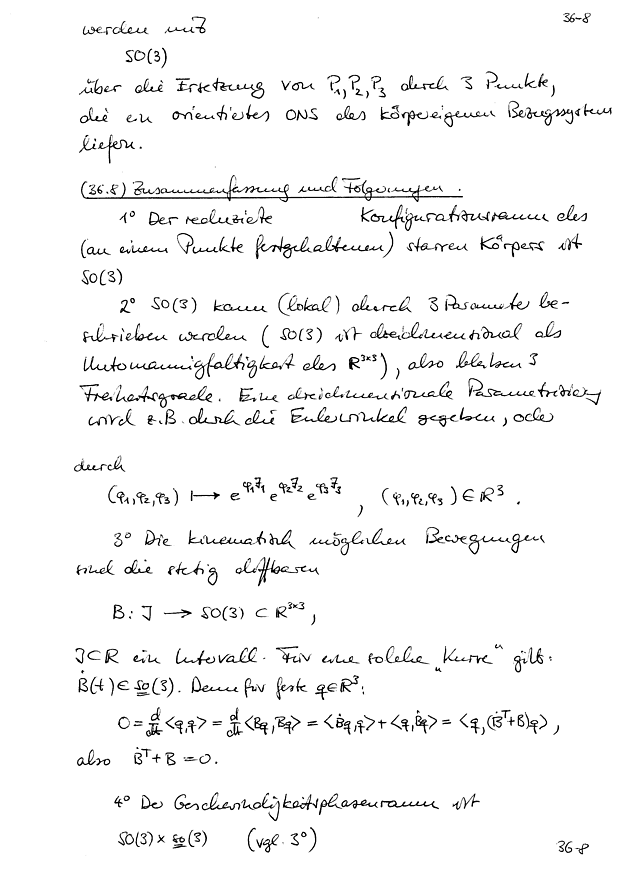 36-8
werden mit
SO(3)
über die Ersetzung von P₁, P₂, P₃ durch 3 Punkte,
die ein orientiertes ONS des körpereigenen Bezugssystem
liefern.
(36.8) Zusammenfassung und Folgerungen.
1° Der reduzierte Konfigurationsraum des
(an einem Punkte festgehaltenen) starren Körpers ist
SO(3)
2° SO(3) kann (lokal) durch 3 Parameter be-
schrieben werden (SO(3) ist dreidimensional als
Untermannigfaltigkeit des ℝ³ˣ³), also bleiben 3
Freiheitsgrade. Eine dreidimensionale Parametrisierung
wird z.B. durch die Eulerwinkel gegeben, oder
durch
(φ₁,φ₂,φ₃) ⟼ e^{φ₁J₁} e^{φ₂J₂} e^{φ₃J₃}, (φ₁,φ₂,φ₃) ∈ ℝ³.
3° Die kinematisch möglichen Bewegungen
sind die stetig diffbaren
B: J → SO(3) ⊂ ℝ³ˣ³,
J⊂ℝ ein Intervall. Für eine solche „Kurve" gilt:
Ḃ(t) ∈ so(3). Denn für feste q∈ℝ³:
0 = d/dt <q,q> = d/dt <Bq,Bq> = <Ḃq,q> + <q,Ḃq> = <q,(Ḃᵀ+Ḃ)q>,
also Ḃᵀ+B = 0.
4° Der Geschwindigkeitsphasenraum ist
SO(3) × so(3) (vgl. 3°)
36-8